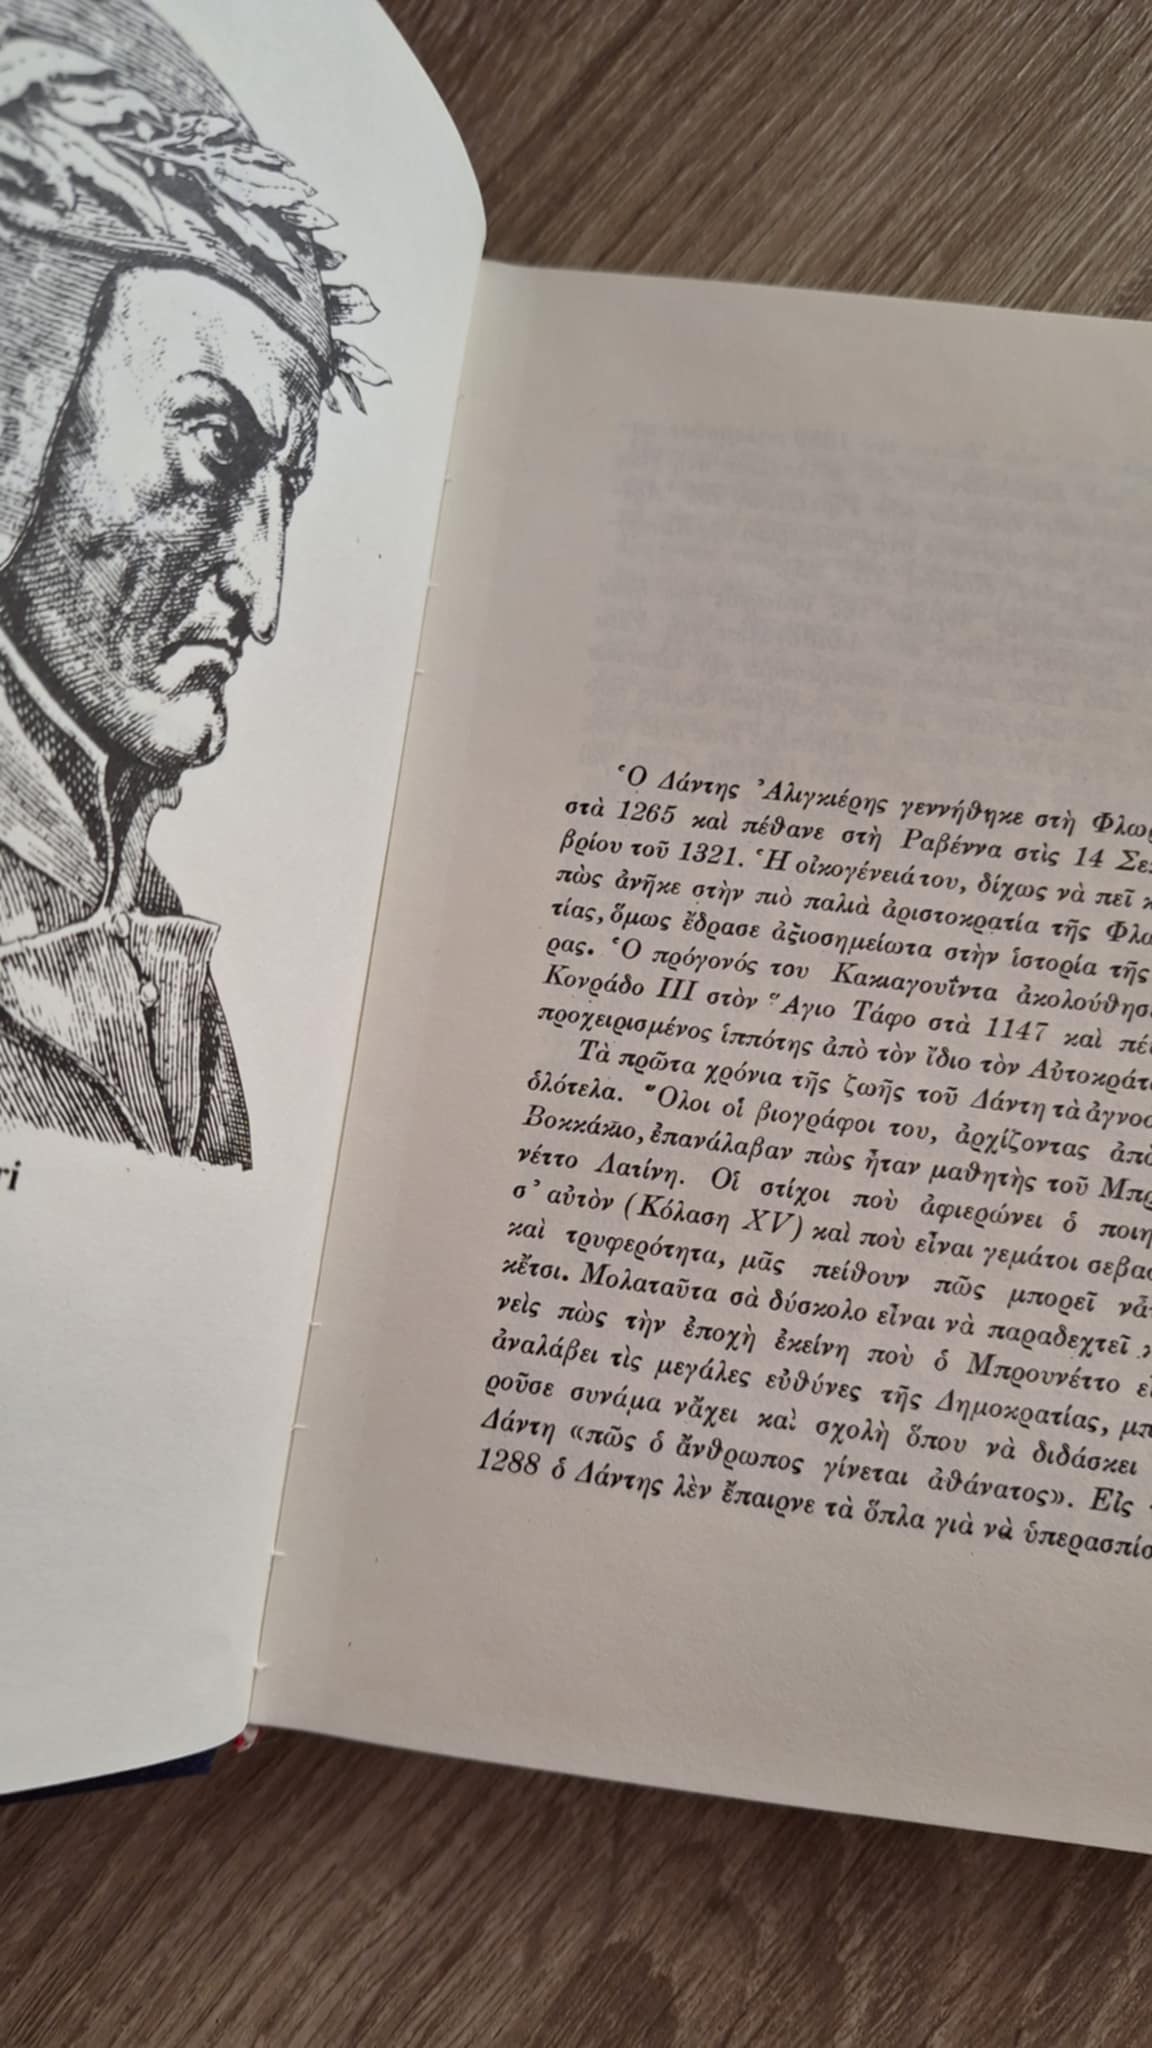 ri
Ὁ Δάντης Ἀλιγκιέρης γεννήθηκε στὴ
στὰ 1265 καὶ πέθανε στὴ Ραβέννα στὶς 14
βρίου τοῦ 1321. Ἡ οἰκογένειά του, δίχως νὰ πεῖ
πὼς ἀνῆκε στὴν πιὸ παλιὰ ἀριστοκρατία τῆς
τίας, ὅμως ἔδρασε ἀξιοσημείωτα στὴν ἱστορία τῆς
ρας. Ὁ πρόγονός του Κακιαγουΐντα
Κονράδο III στὸν Ἅγιο Τάφο στὰ 1147 καὶ
προχειρισμένος ἱππότης ἀπὸ τὸν ἴδιο τὸν
Τὰ πρῶτα χρόνια τῆς ζωῆς τοῦ Δάντη τὰ
ὁλότελα. Ὅλοι οἱ βιογράφοι του, ἀρχίζοντας
Βοκκάκιο, ἐπανάλαβαν πὼς ἦταν μαθητὴς τοῦ
νέττο Λατίνη. Οἱ στίχοι ποὺ ἀφιερώνει ὁ
σ' αὐτὸν (Κόλαση XV) καὶ ποὺ εἶναι γεμάτοι
καὶ τρυφερότητα, μᾶς πείθουν πῶς μπορεῖ
κἔτσι. Μολαταῦτα σὰ δύσκολο εἶναι νὰ παραδεχτεῖ
νεὶς πὼς τὴν ἐποχὴ ἐκείνη ποὺ ὁ Μπρουνέττο
ἀναλάβει τὶς μεγάλες εὐθύνες τῆς Δημοκρατίας,
ροῦσε συνάμα νἄχει καὶ σχολὴ ὅπου νὰ διδάσκει
Δάντη «πῶς ὁ ἄνθρωπος γίνεται ἀθάνατος». Εἰς
1288 ὁ Δάντης λὲν ἔπαιρνε τὰ ὅπλα γιὰ νὰ